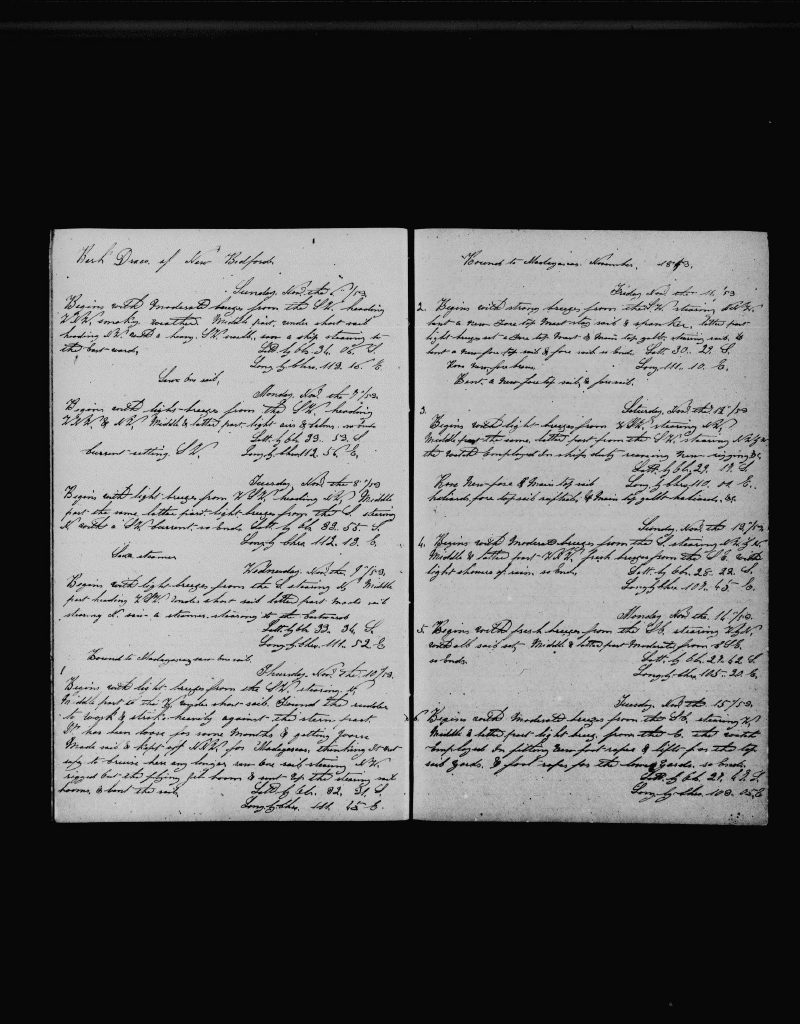 Bark Draco of New Bedford.
Sunday, Nov. the 6th/53
Begins with moderate breeze from the SW. heading
WNW, smoky weather. Middle part, under short sail
heading NW. with a heavy SW swell, saw a ship steering to
the East ward,
Latt. by Ob. 34. 06. S.
Long by Chro. 113. 16. E.
Saw one sail,
Monday, Nov. the 7th/53.
Begins with light breeze from the SW. heading
WNW & NW. Middle & latter part light airs & calms. so ends
Latt. by Ob. 33. 53. S
Current setting SW
Long by Chro 112. 56. E.
Tuesday, Nov. the 8th/53
Begins with light breeze from WSW heading NW, Middle
part the same latter part light breeze from the S. steering
N with a SW current, so ends. Latt. by Ob. 33. 55. S.
Long by Chro. 112. 13. E.
Saw steamer
Wednesday, Nov. the 9th/53,
Begins with light breeze from the S steering Middle
part heading WSW under short sail latter part made sail
steering N saw a steamer steering to the Eastward
Latt. by Ob. 33. 34. S.
Long by Chro. 111. 52 E
Bound to Madagascar saw one sail.
Thursday, Nov. the 10/53.
1
Begins with light breeze from the SW. steering
Middle part to the W, under short sail. Found the rudder
to work & strike heavily against the stern post.
It has been loose for some months & getting worse
Made sail & kept off NNW for Madagascar, thinking it not
safe to cruise here any longer saw one sail steering NW
rigged out the flying jib boom & sent up the steering sail
booms & bent the sail.
Latt. by Ob. 32. 31. S.
Long by Chro. 111. 25 E.
Bound to Madagascar. November. 1853.
Friday, Nov. the 11,/53
2. Begins with strong breeze from the SW steering
bent a new Fore top Mast stay sail & spanker, latter part
light breeze set a Fore top Mast & Main top gallt steering sail. &
bent a new fore top sail & fore sail so ends Latt. 30. 29. S.
Long. 111. 10. E.
Bent. a new fore top sail, & fore sail.
Saturday, Nov. the 12th/53
3.
Begins with light breeze from WSW steering NW
Middle part the same, latter part from the SW. steering NW
the watch employed in ship's duty reeving new rigging &c.
Latt. by Ob. 29. 19. S.
Rove new fore & Main top sail Long by Chro. 110. 01 E.
haliards, fore top sail & Main top gallt haliards. &c.
Sunday, Nov. the 13/53
4. Begins with Moderate breeze from the S. steering
Middle & latter part fresh breeze from the SE. with
light showers of rain. so ends.
Latt. by Ob. 28. 22. S.
Long by Chro. 107. 45 E.
Monday Nov. the. 14th/53.
5. Begins with fresh breeze from the SE. steering
with all sail set, Middle & latter part Moderate from SSE.
so ends.
Latt. by Ob. 27. 42 S
Long by Chro. 105. 20 E.
Tuesday, Nov. the 15/53.
6. Begins with Moderate breeze from the SE. steering
Middle & latter part light breeze from the E. the watch
employed in fitting new foot ropes & lifts for the top
sail yards. & foot ropes for the yards. so ends.
Latt. by Ob. 27. S.
Long by Chro. 103. 05. E